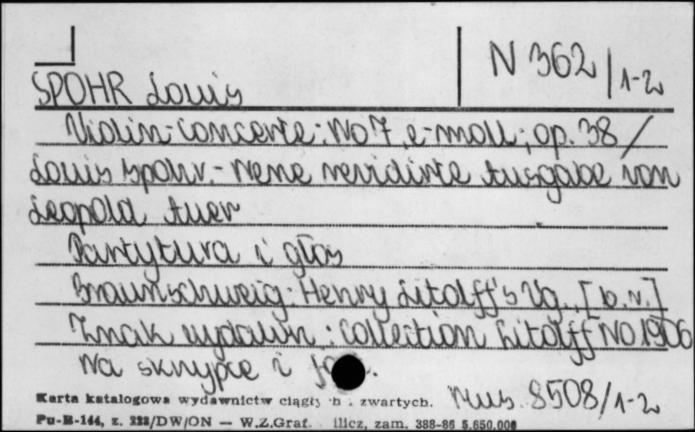 N 362/1-2
SPOHR Louis
Violin-Concerte: No 7, e-moll; op. 38/
Louis Spohr.- Neue revidirte Ausgabe von
Leopold Auer
Partytura i głos
Braunschweig: Henry Litolff's Vg., [b.r.]
Znak wydawn.: Collection Litolff No 1906
Na skrzypce i
Mus. 8508/1-2
Karta katalogowa wydawnictw ciągły h zwartych.
Pu-B-144, z. 222/DW/ON — W.Z.Graf. zam. 388-86 5.650.000